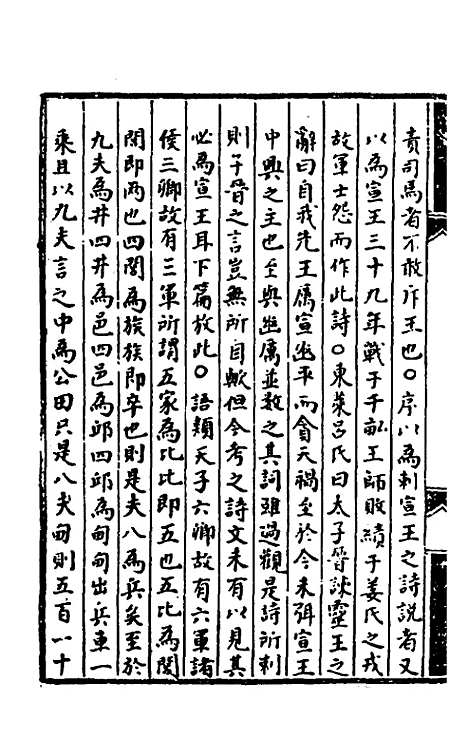 責司馬者不敢斥王也○序以為刺宣王之詩説者又
以為宣王三十九年戰于千畝王師敗績于姜氏之戎
故軍士怨而作此詩○東萊吕氏曰太子晉諫靈王之
辭曰自我先王厲宣幽平而貪天禍至於今未弭宣王
中興之主也至與幽厲並數之其詞雖過觀是詩所刺
則子晉之言豈無所自歟但今考之詩文未有以見其
必為宣王耳下篇放此○語類天子六卿故有六軍諸
侯三卿故有三軍所謂五家為比比即五也五比為閭
閭即兩也四閭為族族即卒也則是夫人為兵矣至於
九夫為井四井為邑四邑為邱四邱為甸甸出兵車一
乘且以九夫言之中為公田只是八夫甸則五百一十